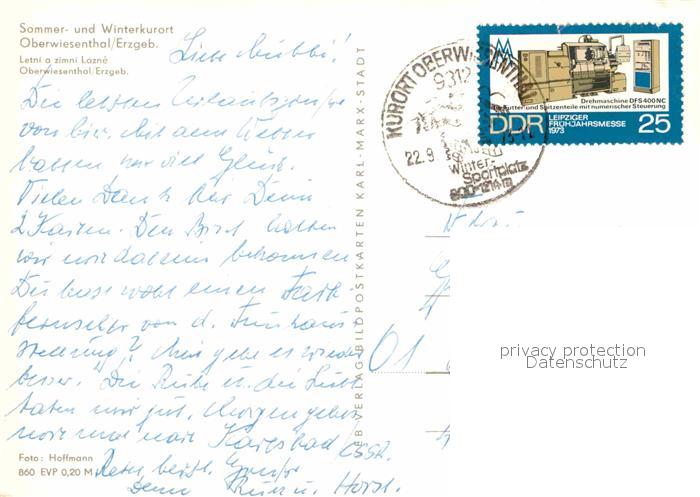 Sommer- und Winterkurort
Oberwiesenthal/Erzgeb.
Letní a zimní Lázně
Oberwiesenthal/Erzgeb.
Liebe
Die letzten Urlaubsgrüße
von hier. Mit dem Wetter
hatten wir viel Glück.
Vielen Dank für Deine
2 Karten. Den Brief hatten
wir noch daheim bekommen
Du hast wohl einen Farb-
fernseher von d.
? Mir geht es wieder
besser. Die Ruhe u. die Luft
taten mir gut. Morgen gehen
wir nach Karlsbad ČSSR.
Recht herzl. Grüße
Deine u. Horst.
Foto: Hoffmann
860 EVP 0,20 M
BILD VERLAG BILDPOSTKARTEN KARL-MARX-STADT
KURORT OBERWIESENTHAL
9312
22.9
Winter-
Sportplatz
900-1214m
MM
Drehmaschine DFS 400 NC
für Futter- und Spitzenteile mit numerischer Steuerung
DDR LEIPZIGER
FRÜHJAHRSMESSE
1973
25
01
privacy protection
Datenschutz